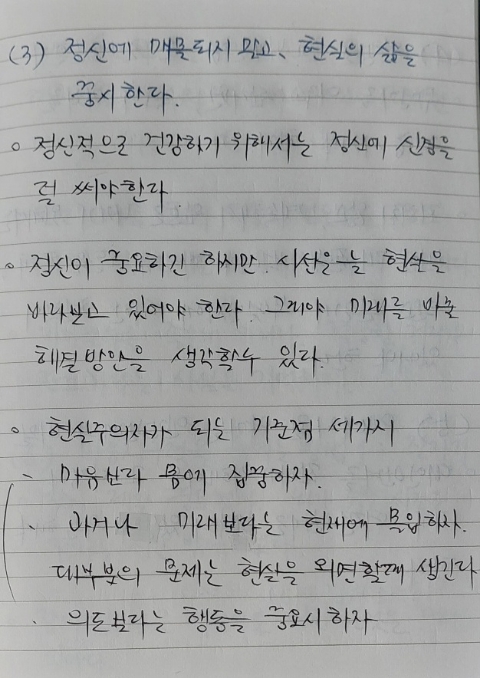 (3) 정신에 매몰되지 말고, 현실의 삶을
중시한다.
o 정신적으로 건강하기 위해서는 정신에 신경을
덜 써야한다.
o 정신이 중요하긴 하지만, 시선은 늘 현실을
바라보고 있어야 한다. 그래야 미래를 바꿀
해결방안을 생각할수 있다.
o 현실주의자가 되는 기준점 세가지
- 마음보다 몸에 집중하자.
· 과거나 미래보다는 현재에 몰입하자.
대부분의 문제는 현실을 외면할때 생긴다
· 의도보다는 행동을 중요시 하자